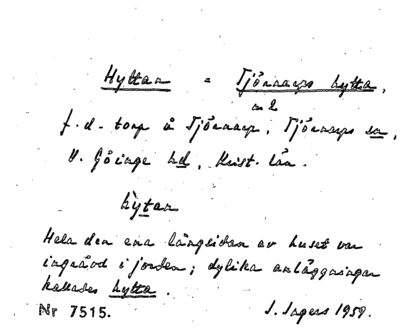 Hyttan = Tjörnarps hytta,
nr 2
f.d. torp å Tjörnarp, Tjörnarps sn,
V. Göinge hd, Krist. län.
hytan
Hela den ena långsidan av huset var
ingrävd i jorden; dylika anläggningar
kallades hytta.
Nr 7515. J. Ingers 1959.